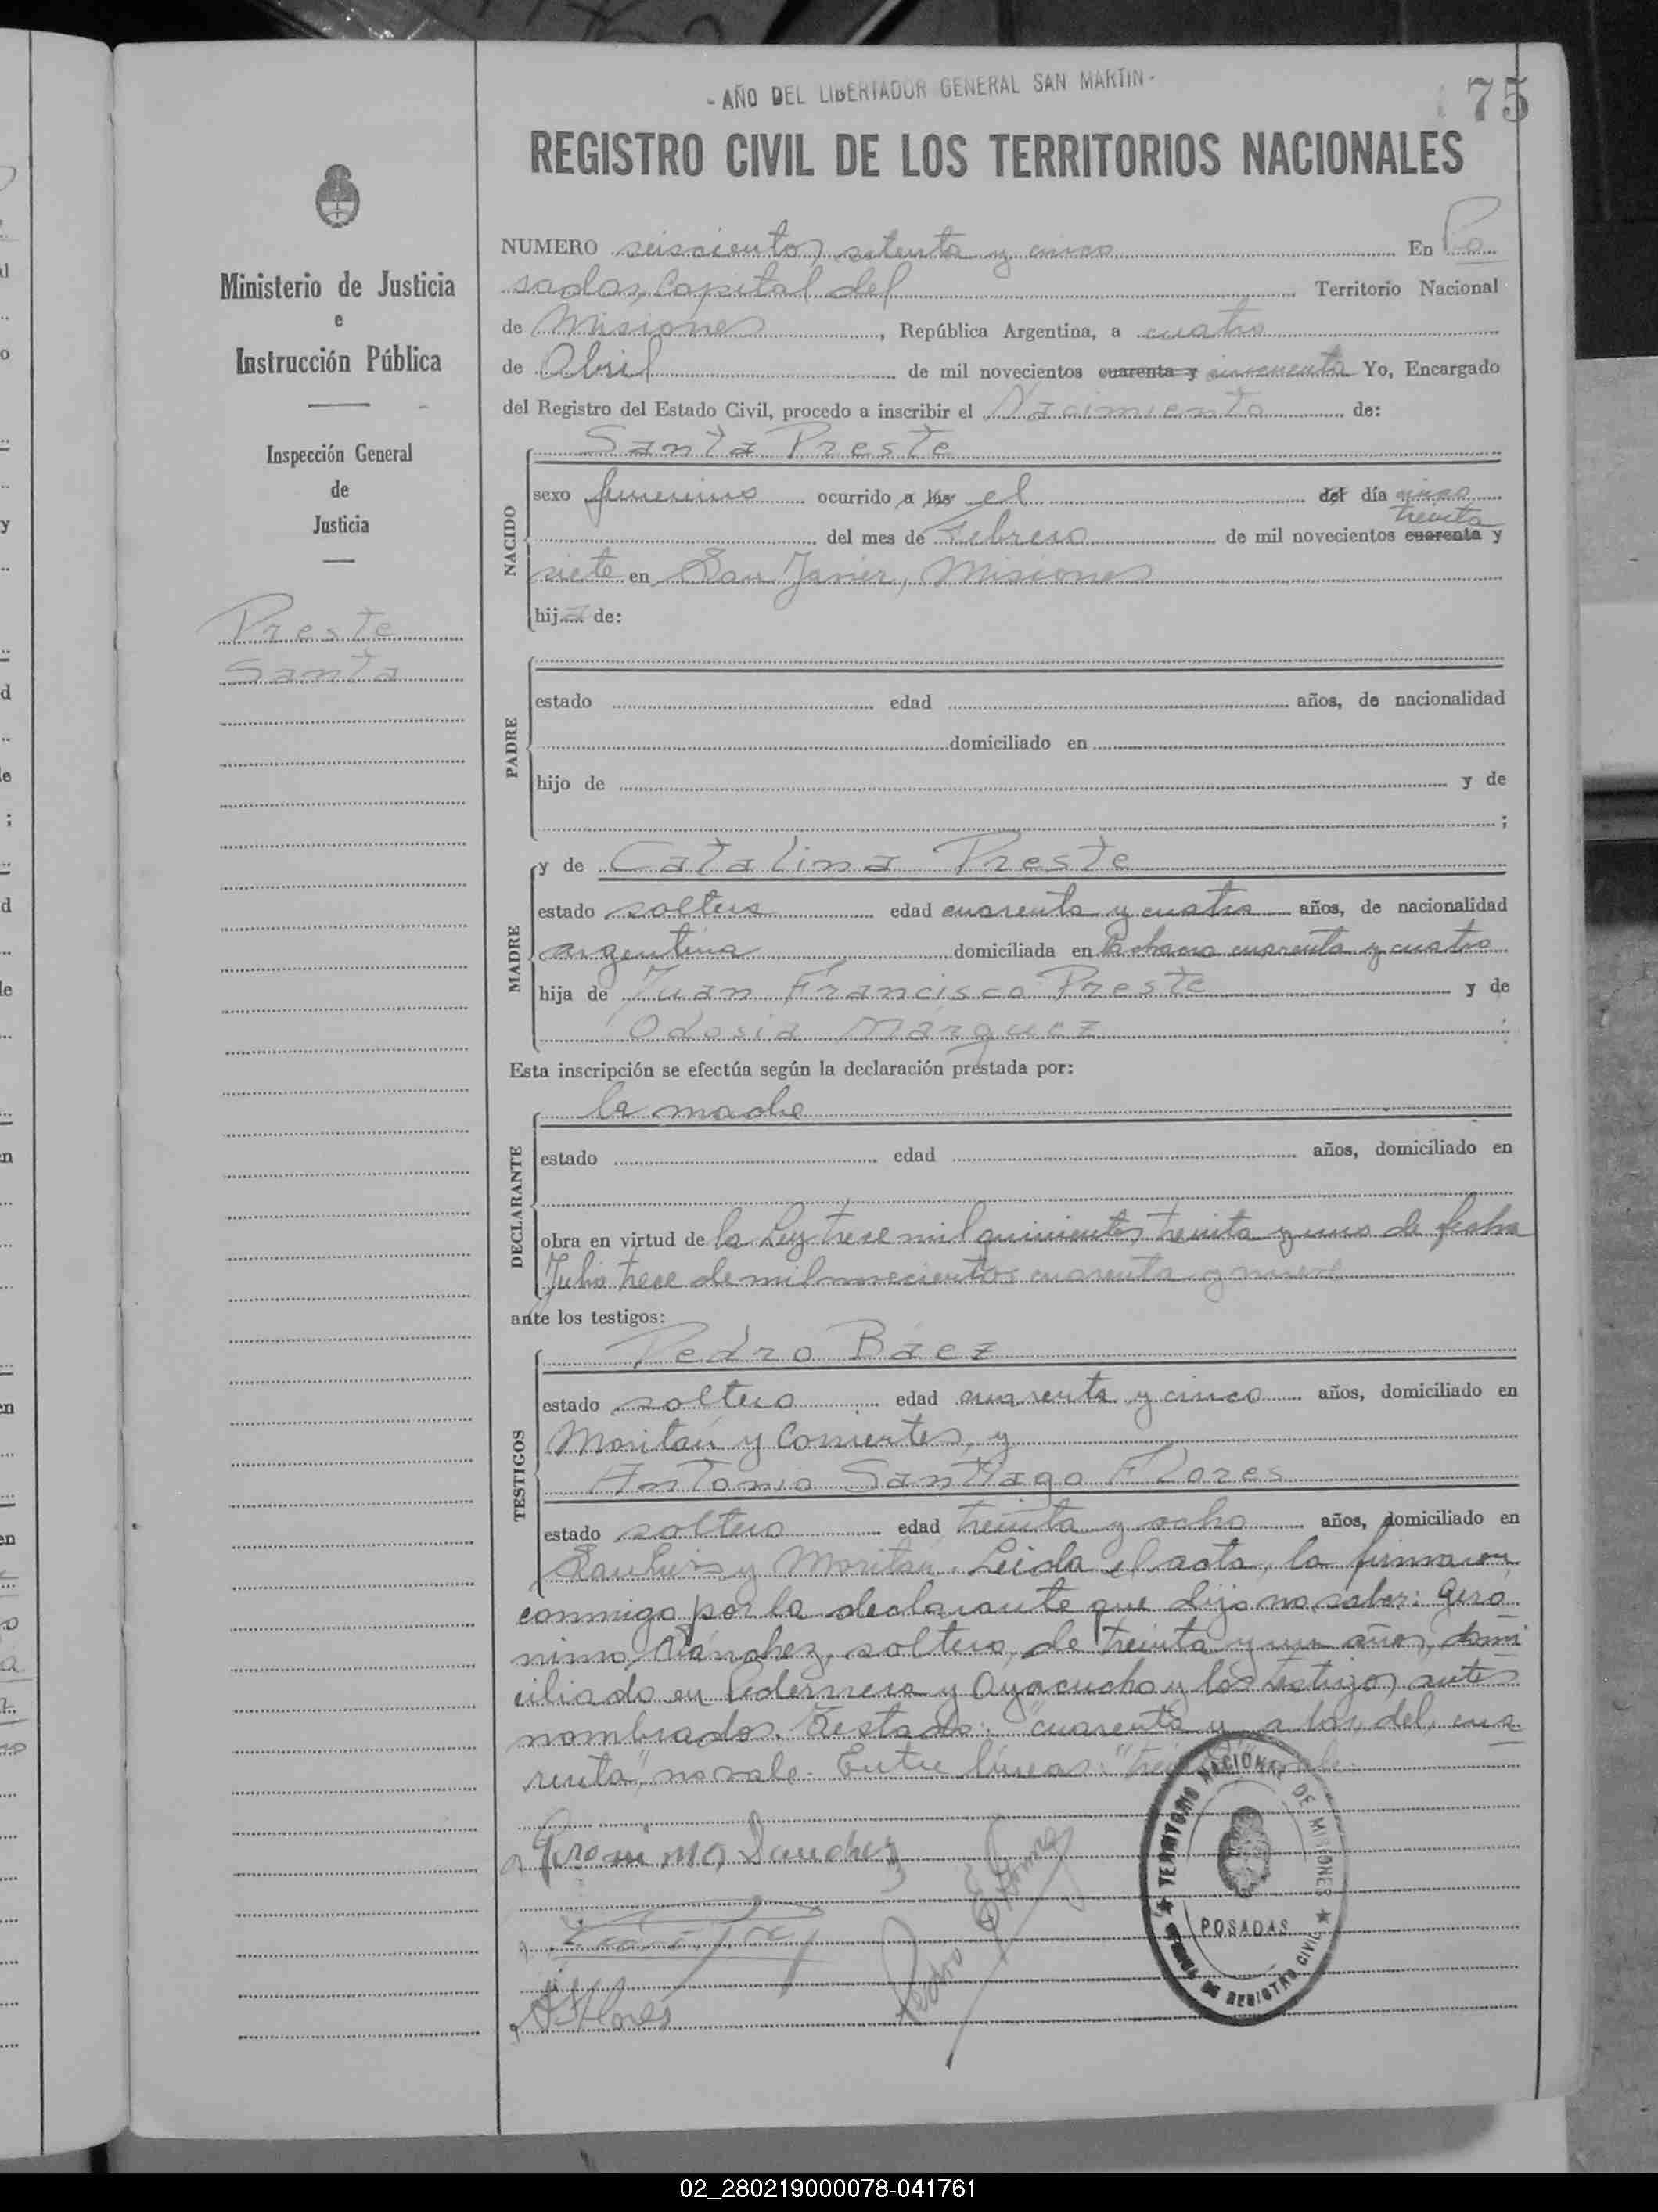 - AÑO DEL LIBERTADOR GENERAL SAN MARTIN -
75
REGISTRO CIVIL DE LOS TERRITORIOS NACIONALES
Ministerio de Justicia
e
Instrucción Pública
Inspección General
de
Justicia
Preste
Santa
NUMERO seiscientos setenta y cinco En Po
sadas, Capital del Territorio Nacional
de Misiones, República Argentina, a cuatro
de Abril de mil novecientos cuarenta y cincuenta Yo, Encargado
del Registro del Estado Civil, procedo a inscribir el Nacimiento de:
NACIDO
Santa Preste
sexo femenino ocurrido a las el del día
treinta
del mes de Febrero de mil novecientos cuarenta y
siete en San Javier, Misiones
hija de:
PADRE
estado edad años, de nacionalidad
domiciliado en
hijo de y de
;
MADRE
y de Catalina Preste
estado soltera edad cuarenta y cuatro años, de nacionalidad
argentina domiciliada en La chacra cuarenta y cuatro
hija de Juan Francisco Preste y de
Odosia Márquez ;
Esta inscripción se efectúa según la declaración prestada por:
DECLARANTE
la madre
estado edad años, domiciliado en
obra en virtud de la Ley trece mil quinientos treinta y uno de fecha
Julio trece de mil novecientos cuarenta y nueve
ante los testigos:
TESTIGOS
Pedro Báez
estado soltero edad cuarenta y cinco años, domiciliado en
Moritán y Corrientes, y
Antonio Santiago Flores
estado soltero edad treinta y ocho años, domiciliado en
San Luis y Moritán. Leida el acta, la firmaron
conmigo por la declarante que dijo no saber: Geró
nimo Sánchez, soltero, de treinta y un años, domi
ciliado en Pedernera y Ayacucho y los testigos antes
nombrados. Testado: "cuarenta y, a las, del, cua
renta", no vale. Entre líneas: "treinta", vale.
Geronimo Sanchez
A S Flores
TERRITORIO NACIONAL DE MISIONES
POSADAS
DE REGISTRO CIVIL
02_280219000078-041761